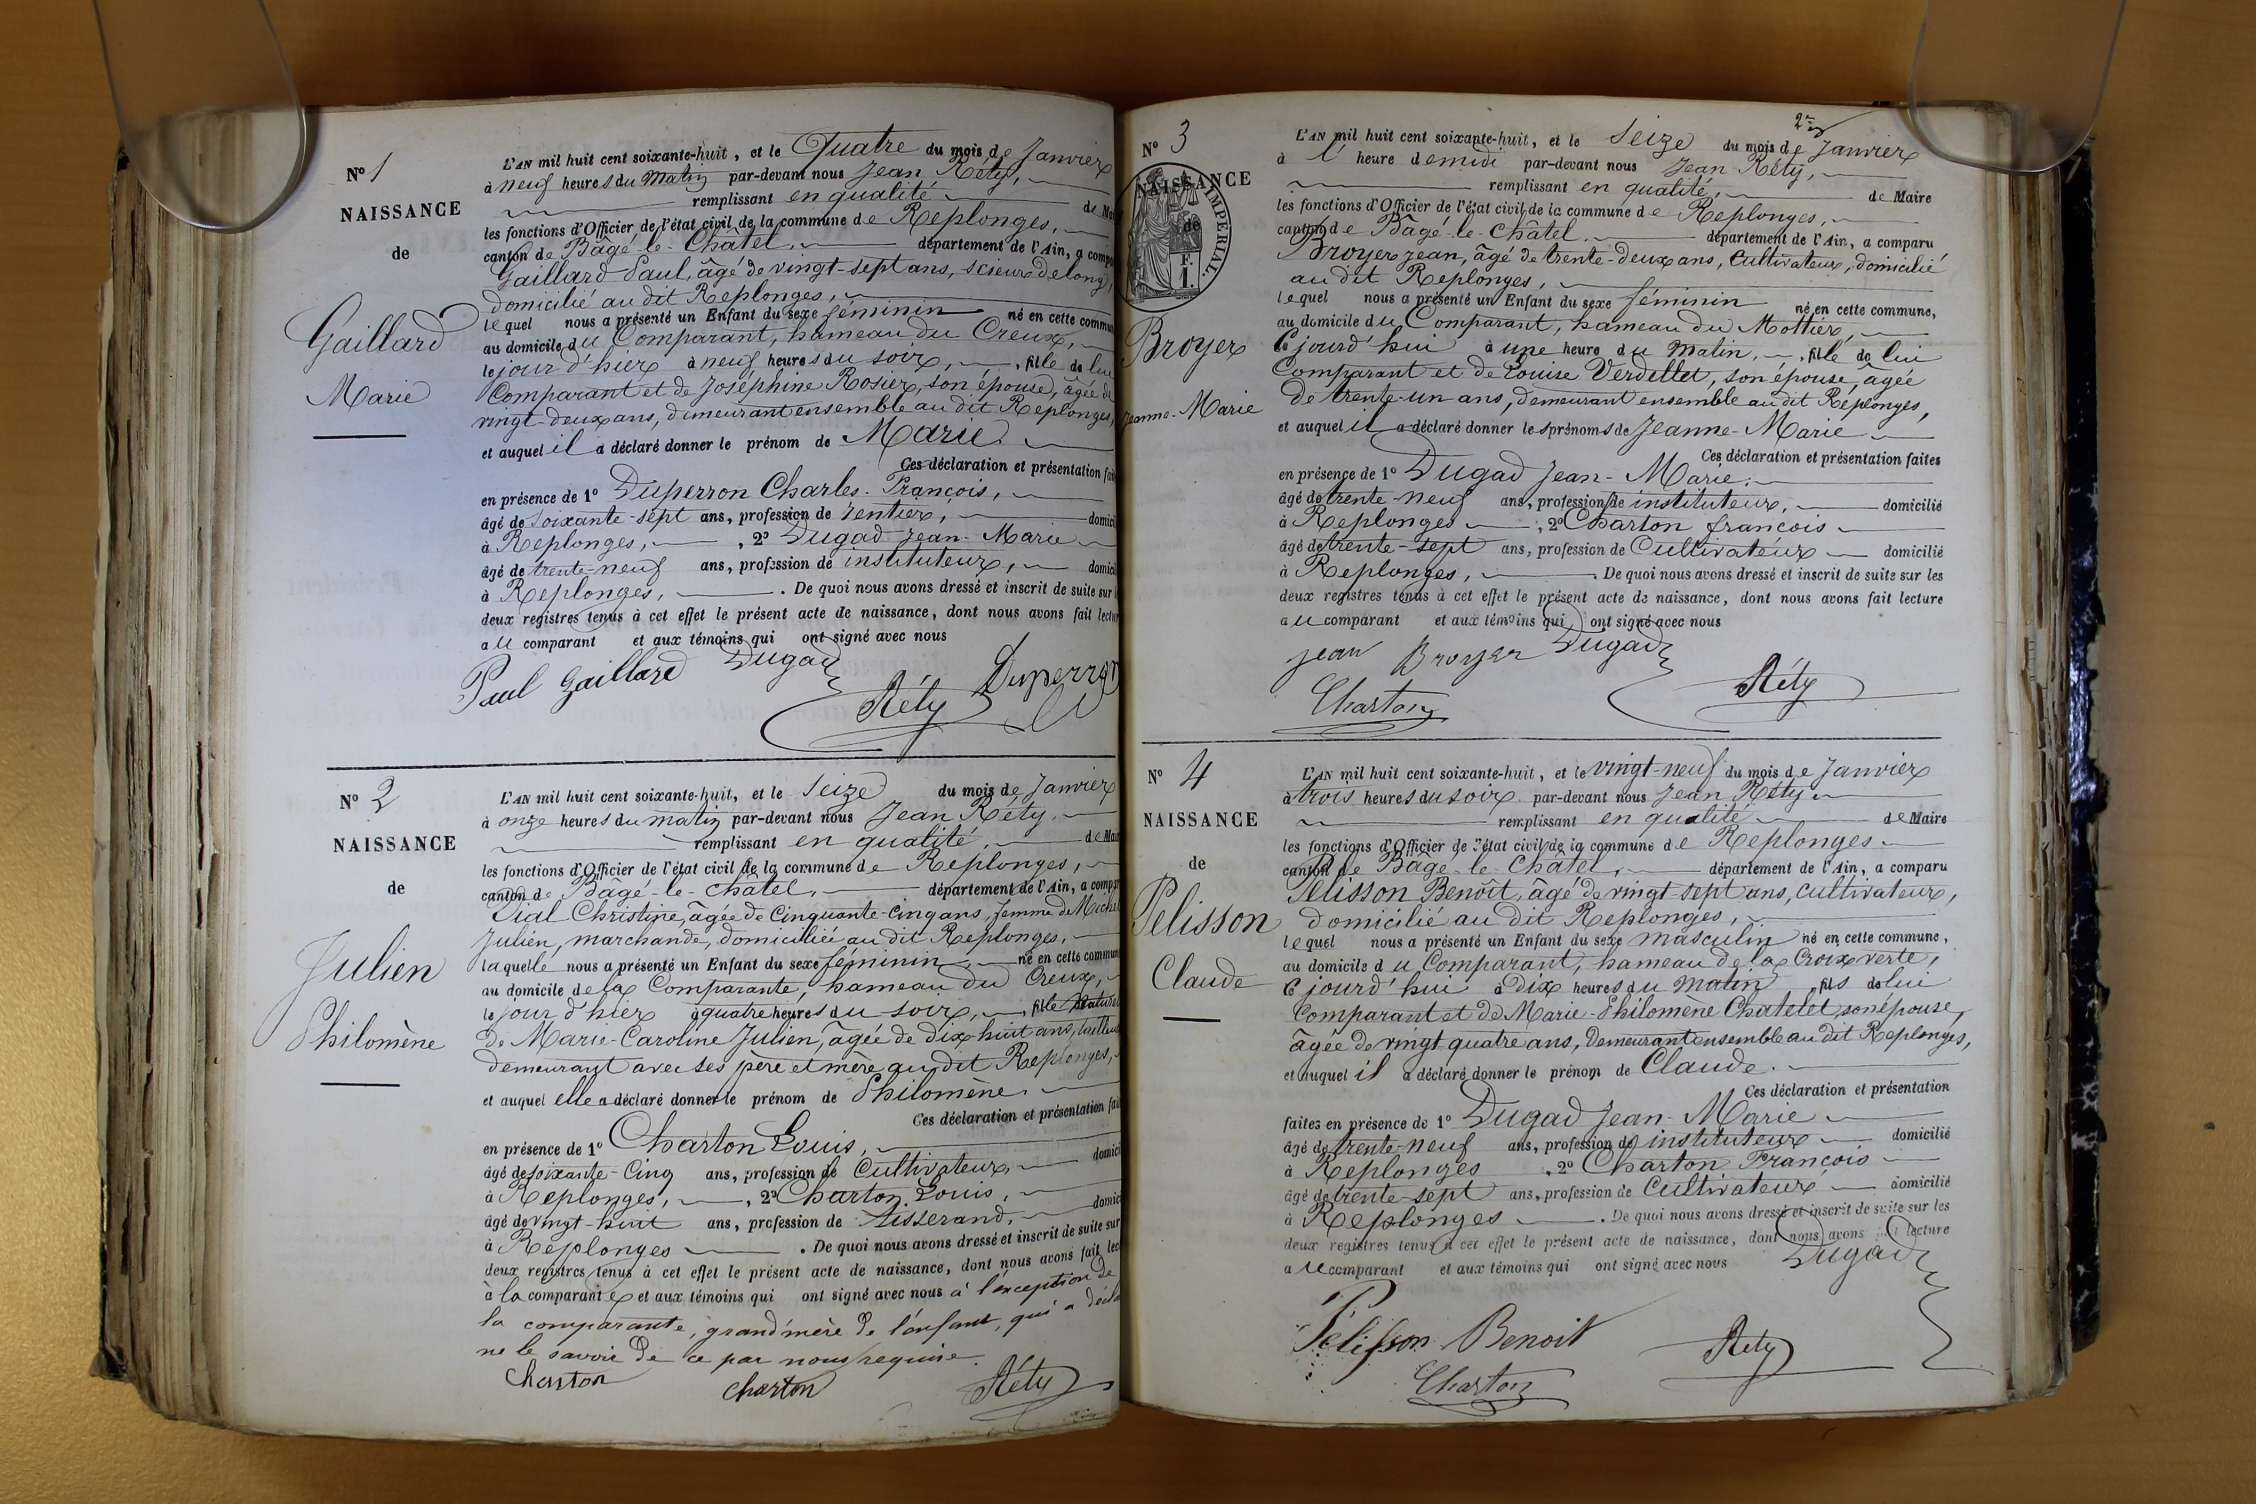 N° 1
NAISSANCE
de
Gaillard
Marie
L'AN mil huit cent soixante-huit, et le Quatre du mois de Janvier
à neuf heures du matin par-devant nous Jean Réty,
remplissant en qualité de
les fonctions d'Officier de l'état civil de la commune de Replonges,
canton de Bâgé-le-Châtel, département de l'Ain, a
Gaillard Paul, âgé de vingt-sept ans, scieur de long,
domicilié au dit Replonges,
lequel nous a présenté un Enfant du sexe féminin né en cette
au domicile du Comparant, hameau du Creux,
le jour d'hier à neuf heures du soir, fille de lui
Comparant et de Joséphine Rosier, son épouse, âgée de
vingt-deux ans, demeurant ensemble au dit Replonges,
et auquel il a déclaré donner le prénom de Marie.
Ces déclaration et présentation
en présence de 1° Duperron Charles-François,
âgé de soixante-sept ans, profession de rentier,
à Replonges, , 2° Dugad Jean-Marie
âgé de trente-neuf ans, profession de instituteur,
à Replonges, . De quoi nous avons dressé et inscrit de suite sur
deux registres tenus à cet effet le présent acte de naissance, dont nous avons fait
au comparant et aux témoins qui ont signé avec nous
Paul Gaillard Dugad Duperron
Réty
N° 2
NAISSANCE
de
Julien
Philomène
L'AN mil huit cent soixante-huit, et le Seize du mois de Janvier
à onze heures du matin par-devant nous Jean Réty,
remplissant en qualité de
les fonctions d'Officier de l'état civil de la commune de Replonges,
canton de Bâgé-le-Châtel, département de l'Ain, a
Vial Christine, âgée de Cinquante-cinq ans, femme de
Julien, marchande, domiciliée au dit Replonges,
laquelle nous a présenté un Enfant du sexe féminin né en cette
au domicile de la Comparante, hameau du Creux,
le jour d'hier à quatre heures du soir, fille
de Marie-Caroline Julien, âgée de dix-huit ans,
demeurant avec ses père et mère au dit Replonges,
et auquel elle a déclaré donner le prénom de Philomène.
Ces déclaration et présentation
en présence de 1° Charton Louis,
âgé de soixante-Cinq ans, profession de Cultivateur,
à Replonges, , 2° Charton Louis,
âgé de vingt-huit ans, profession de tisserand,
à Replonges . De quoi nous avons dressé et inscrit de suite sur
deux registres tenus à cet effet le présent acte de naissance, dont nous avons fait
à la comparante et aux témoins qui ont signé avec nous à l'exception de
la comparante, grand'mère de l'enfant, qui a
ne le savoir de ce par nous requise.
Charton Charton Réty
2
N° 3
NAISSANCE
de
IMPERIAL.
F.
1.
Broyer
Jeanne-Marie
L'AN mil huit cent soixante-huit, et le Seize du mois de Janvier
à l' heure de midi par-devant nous Jean Réty,
remplissant en qualité, de Maire
les fonctions d'Officier de l'état civil de la commune de Replonges,
canton de Bâgé-le-Châtel, département de l'Ain, a comparu
Broyer Jean, âgé de trente-deux ans, Cultivateur, domicilié
au dit Replonges,
lequel nous a présenté un Enfant du sexe féminin né en cette commune,
au domicile du Comparant, hameau du Mottier,
Ce jourd'hui à une heure du matin, fille de lui
Comparant et de Louise Verdellet, son épouse, âgée
de trente-un ans, demeurant ensemble au dit Replonges,
et auquel il a déclaré donner les prénoms de Jeanne-Marie
Ces déclaration et présentation faites
en présence de 1° Dugad Jean-Marie,
âgé de trente-neuf ans, profession de instituteur, domicilié
à Replonges , 2° Charton françois
âgé de trente-sept ans, profession de Cultivateur domicilié
à Replonges, . De quoi nous avons dressé et inscrit de suite sur les
deux registres tenus à cet effet le présent acte de naissance, dont nous avons fait lecture
au comparant et aux témoins qui ont signé avec nous
Jean Broyer Dugad
Charton Réty
N° 4
NAISSANCE
de
Pelisson
Claude
L'AN mil huit cent soixante-huit, et le vingt-neuf du mois de Janvier
à trois heures du soir par-devant nous Jean Réty
remplissant en qualité de Maire
les fonctions d'Officier de l'état civil de la commune de Replonges
canton de Bâgé-le-Châtel, département de l'Ain, a comparu
Pelisson Benoît, âgé de vingt-sept ans, cultivateur,
domicilié au dit Replonges,
lequel nous a présenté un Enfant du sexe masculin né en cette commune,
au domicile du Comparant, hameau de la Croix verte,
Ce jourd'hui à Dix heures du matin, fils de lui
Comparant et de Marie-Philomène Chatelet, son épouse,
âgée de vingt-quatre ans, demeurant ensemble au dit Replonges,
et auquel il a déclaré donner le prénom de Claude.
Ces déclaration et présentation
faites en présence de 1° Dugad Jean-Marie
âgé de trente-neuf ans, profession de instituteur domicilié
à Replonges , 2° Charton François
âgé de trente-sept ans, profession de Cultivateur domicilié
à Replonges . De quoi nous avons dressé et inscrit de suite sur les
deux registres tenus à cet effet le présent acte de naissance, dont nous avons fait lecture
au comparant et aux témoins qui ont signé avec nous Dugad
Pelisson Benoit Réty
Charton